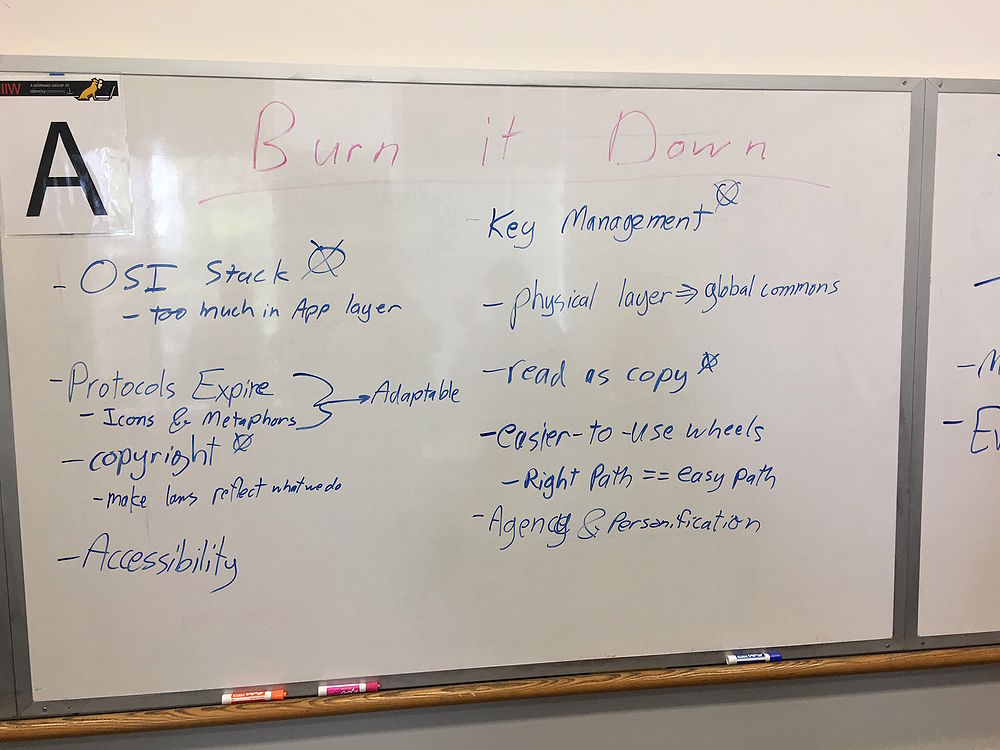 IIW
A WORKING GROUP OF
identitycommons
A
Burn it Down
- OSI Stack
- too much in App layer
- Protocols Expire
- Icons & Metaphors
→ Adaptable
- copyright
- make laws reflect what we do
- Accessibility
- Key Management
- physical layer ⇒ global commons
- read as copy
- easier-to-use wheels
- Right Path == easy path
- Agency & Personification
- M
- Ev